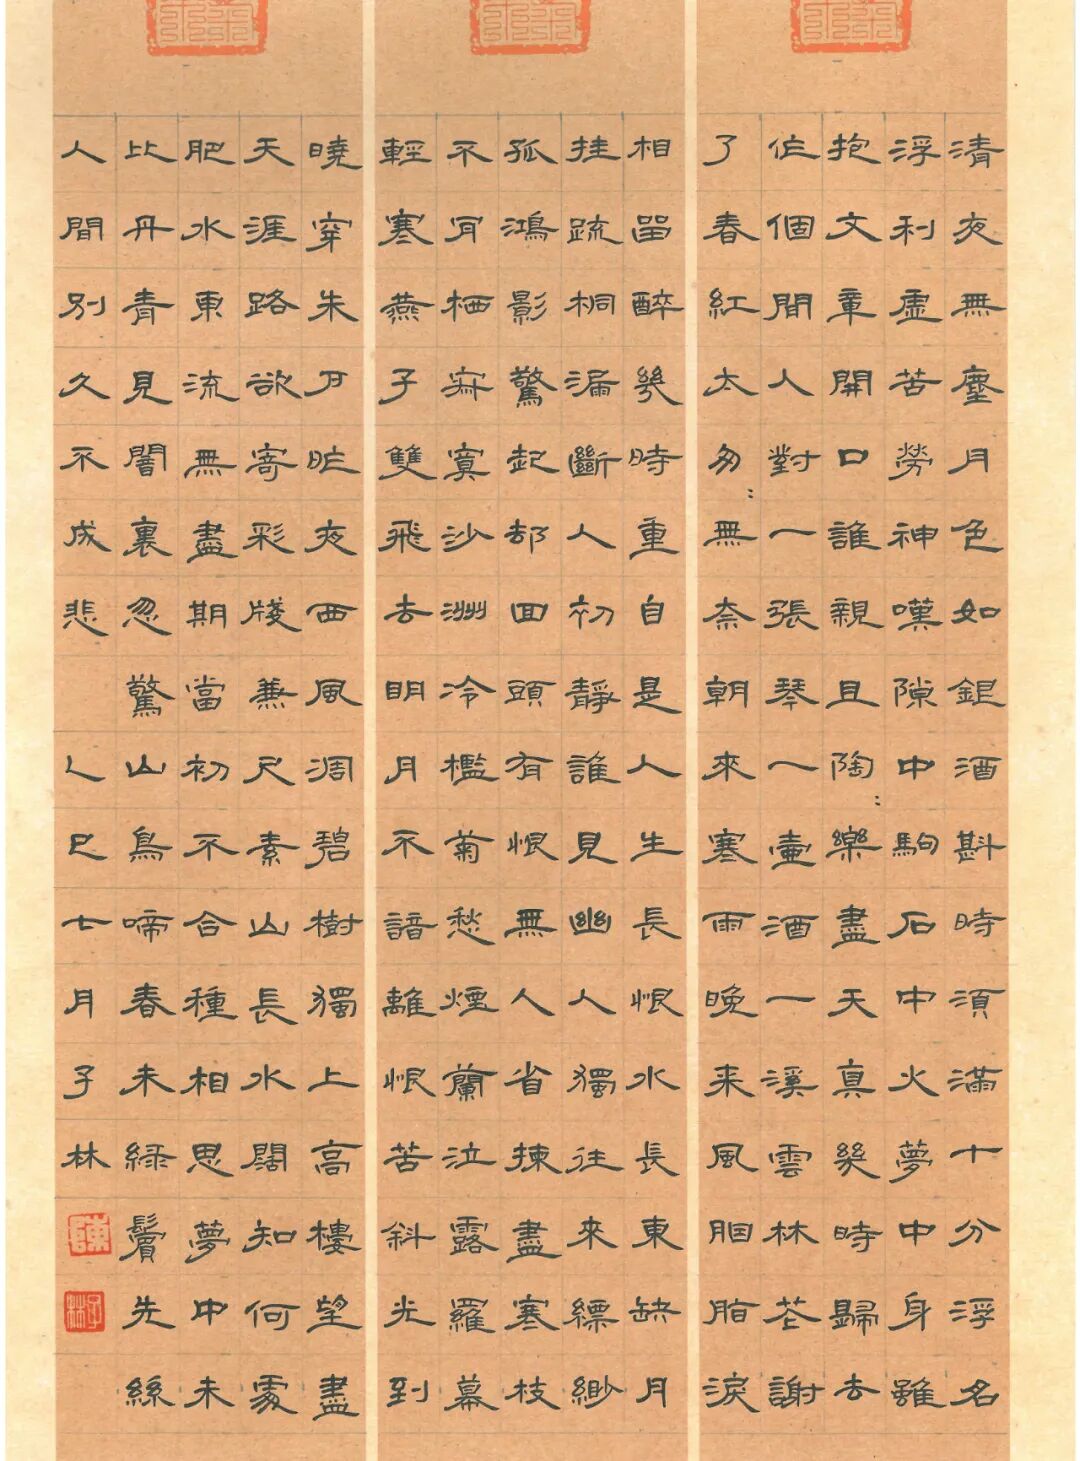 清夜無塵月色如銀酒斟時須滿十分浮名
浮利虛苦勞神嘆隙中駒石中火夢中身雖
抱文章開口誰親且陶：樂盡天真幾時歸去
作個閒人對一張琴一壺酒一溪雲林花謝
了春紅太匆：無奈朝來寒雨晚來風胭脂淚
相留醉幾時重自是人生長恨水長東缺月
挂疏桐漏斷人初靜誰見幽人獨往來縹緲
孤鴻影驚起却回頭有恨無人省揀盡寒枝
不肯栖寂寞沙洲冷檻菊愁煙蘭泣露羅幕
輕寒燕子雙飛去明月不諳離恨苦斜光到
曉穿朱戶昨夜西風凋碧樹獨上高樓望盡
天涯路欲寄彩牋兼尺素山長水闊知何處
肥水東流無盡期當初不合種相思夢中未
比丹青見闇裏忽驚山鳥啼春未綠鬢先絲
人間別久不成悲 乙巳七月子林
陳
子林